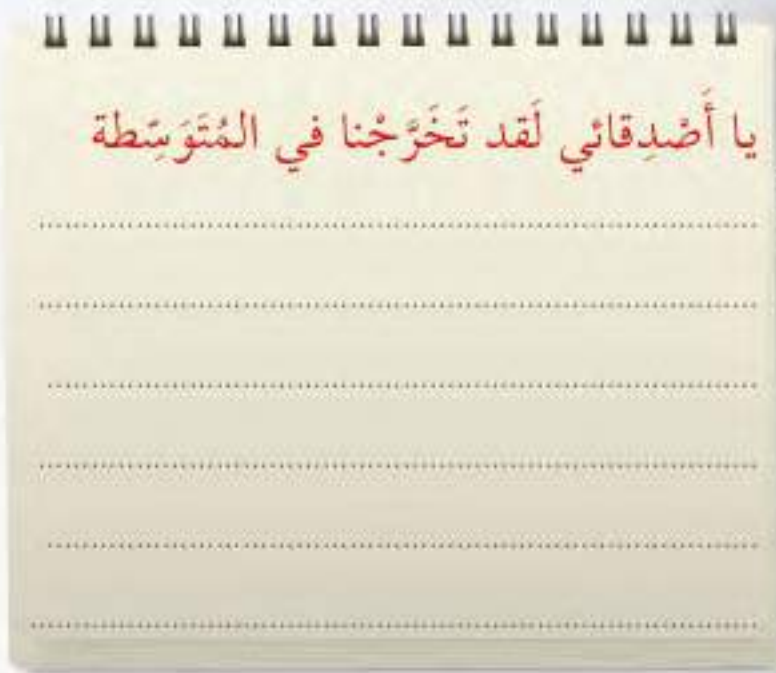 يا أَصْدِقائي لَقد تَخَرَّجْنا في المُتَوَسِّطة